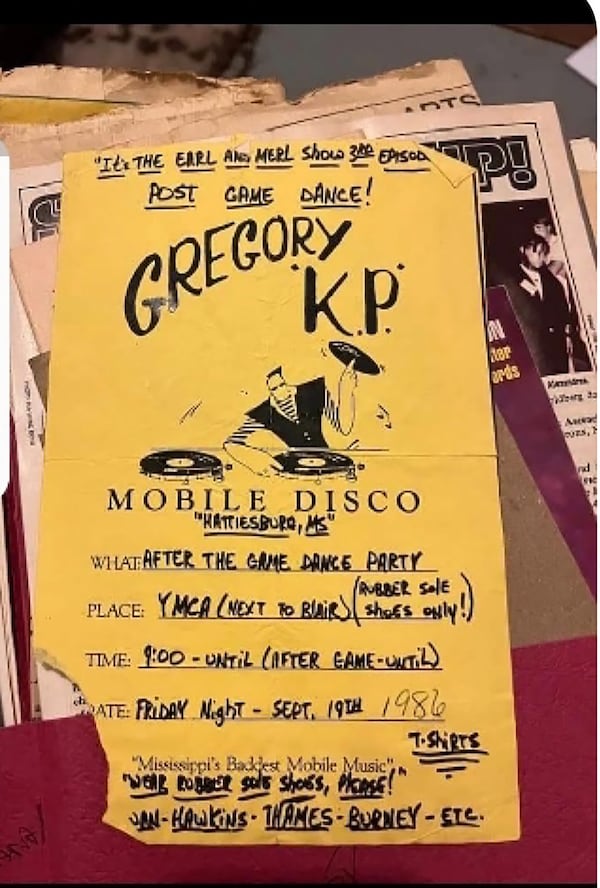 ARTS
P!
"It's THE EARL AND MERL Show 3RD EPISOD
POST GAME DANCE!
GREGORY
"K.P."
MOBILE DISCO
"HATTIESBURG, MS"
WHAT: AFTER THE GAME DANCE PARTY
PLACE: YMCA (NEXT TO BLAIR) (RUBBER SOLE SHOES ONLY!)
TIME: 9:00 - UNTIL (AFTER GAME-UNTIL)
DATE: FRIDAY NIGHT - SEPT. 19TH 1986
T-SHIRTS
"Mississippi's Baddest Mobile Music"
"WEAR RUBBER SOLE SHOES, PLEASE!"
HAWKINS - THAMES - BURNEY - ETC.